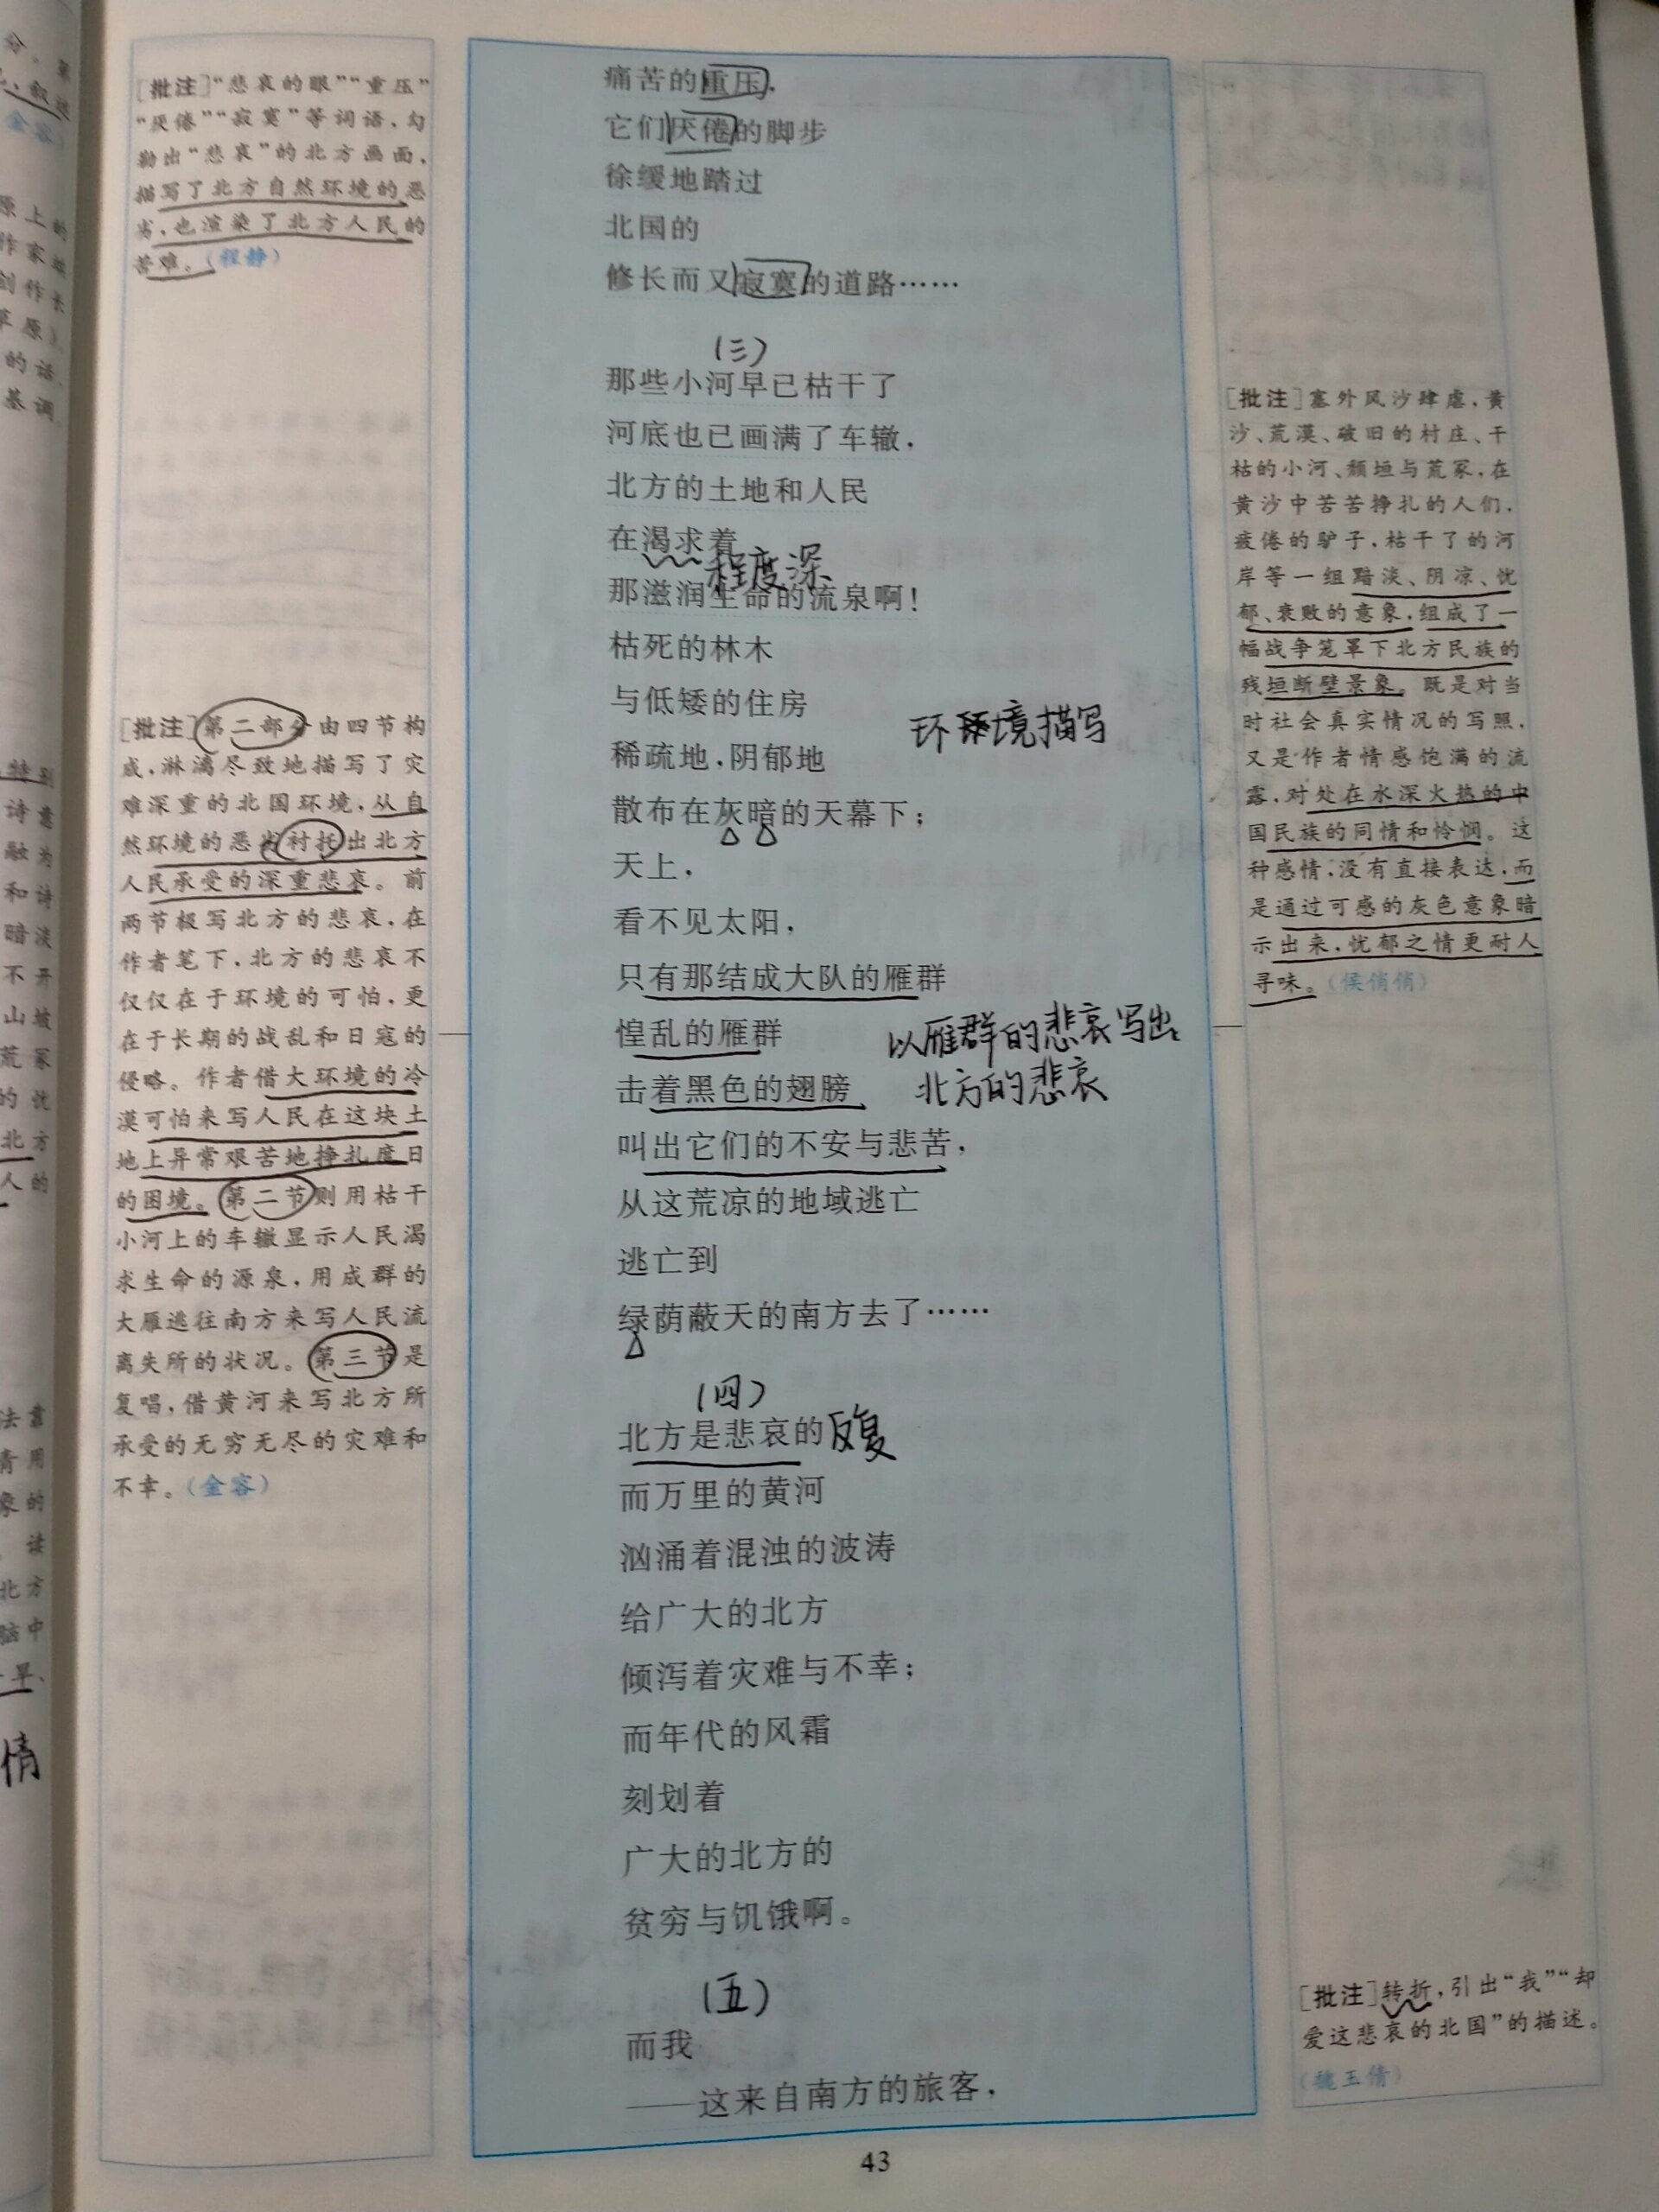 [批注]“悲哀的眼”“重压”
“厌倦”“寂寞”等词语,勾
勒出“悲哀”的北方画面,
描写了北方自然环境的恶
劣,也渲染了北方人民的
苦难。(程静)
[批注]第二部分由四节构
成,淋漓尽致地描写了灾
难深重的北国环境,从自
然环境的恶劣衬托出北方
人民承受的深重悲哀。前
两节极写北方的悲哀,在
作者笔下,北方的悲哀不
仅仅在于环境的可怕,更
在于长期的战乱和日寇的
侵略。作者借大环境的冷
漠可怕来写人民在这块土
地上异常艰苦地挣扎度日
的困境。第二节则用枯干
小河上的车辙显示人民渴
求生命的源泉,用成群的
大雁逃往南方来写人民流
离失所的状况。第三节是
复唱,借黄河来写北方所
承受的无穷无尽的灾难和
不幸。(金容)
痛苦的重压,
它们厌倦的脚步
徐缓地踏过
北国的
修长而又寂寞的道路……
(三)
那些小河早已枯干了
河底也已画满了车辙,
北方的土地和人民
在渴求着
程度深
那滋润生命的流泉啊!
枯死的林木
与低矮的住房
环境描写
稀疏地,阴郁地
散布在灰暗的天幕下;
天上,
看不见太阳,
只有那结成大队的雁群
惶乱的雁群
以雁群的悲哀写出
击着黑色的翅膀
北方的悲哀
叫出它们的不安与悲苦,
从这荒凉的地域逃亡
逃亡到
绿荫蔽天的南方去了……
(四)
北方是悲哀的 反复
而万里的黄河
汹涌着混浊的波涛
给广大的北方
倾泻着灾难与不幸;
而年代的风霜
刻划着
广大的北方的
贫穷与饥饿啊。
(五)
而我
——这来自南方的旅客,
[批注]塞外风沙肆虐,黄
沙、荒漠、破旧的村庄、干
枯的小河、颓垣与荒冢,在
黄沙中苦苦挣扎的人们,
疲倦的驴子,枯干了的河
岸等一组黯淡、阴凉、忧
郁、衰败的意象,组成了一
幅战争笼罩下北方民族的
残垣断壁景象。既是对当
时社会真实情况的写照,
又是作者情感饱满的流
露,对处在水深火热的中
国民族的同情和怜悯。这
种感情,没有直接表达,而
是通过可感的灰色意象暗
示出来,忧郁之情更耐人
寻味。(侯俏俏)
[批注]转折,引出“我”“却
爱这悲哀的北国”的描述。
(魏玉倩)
43